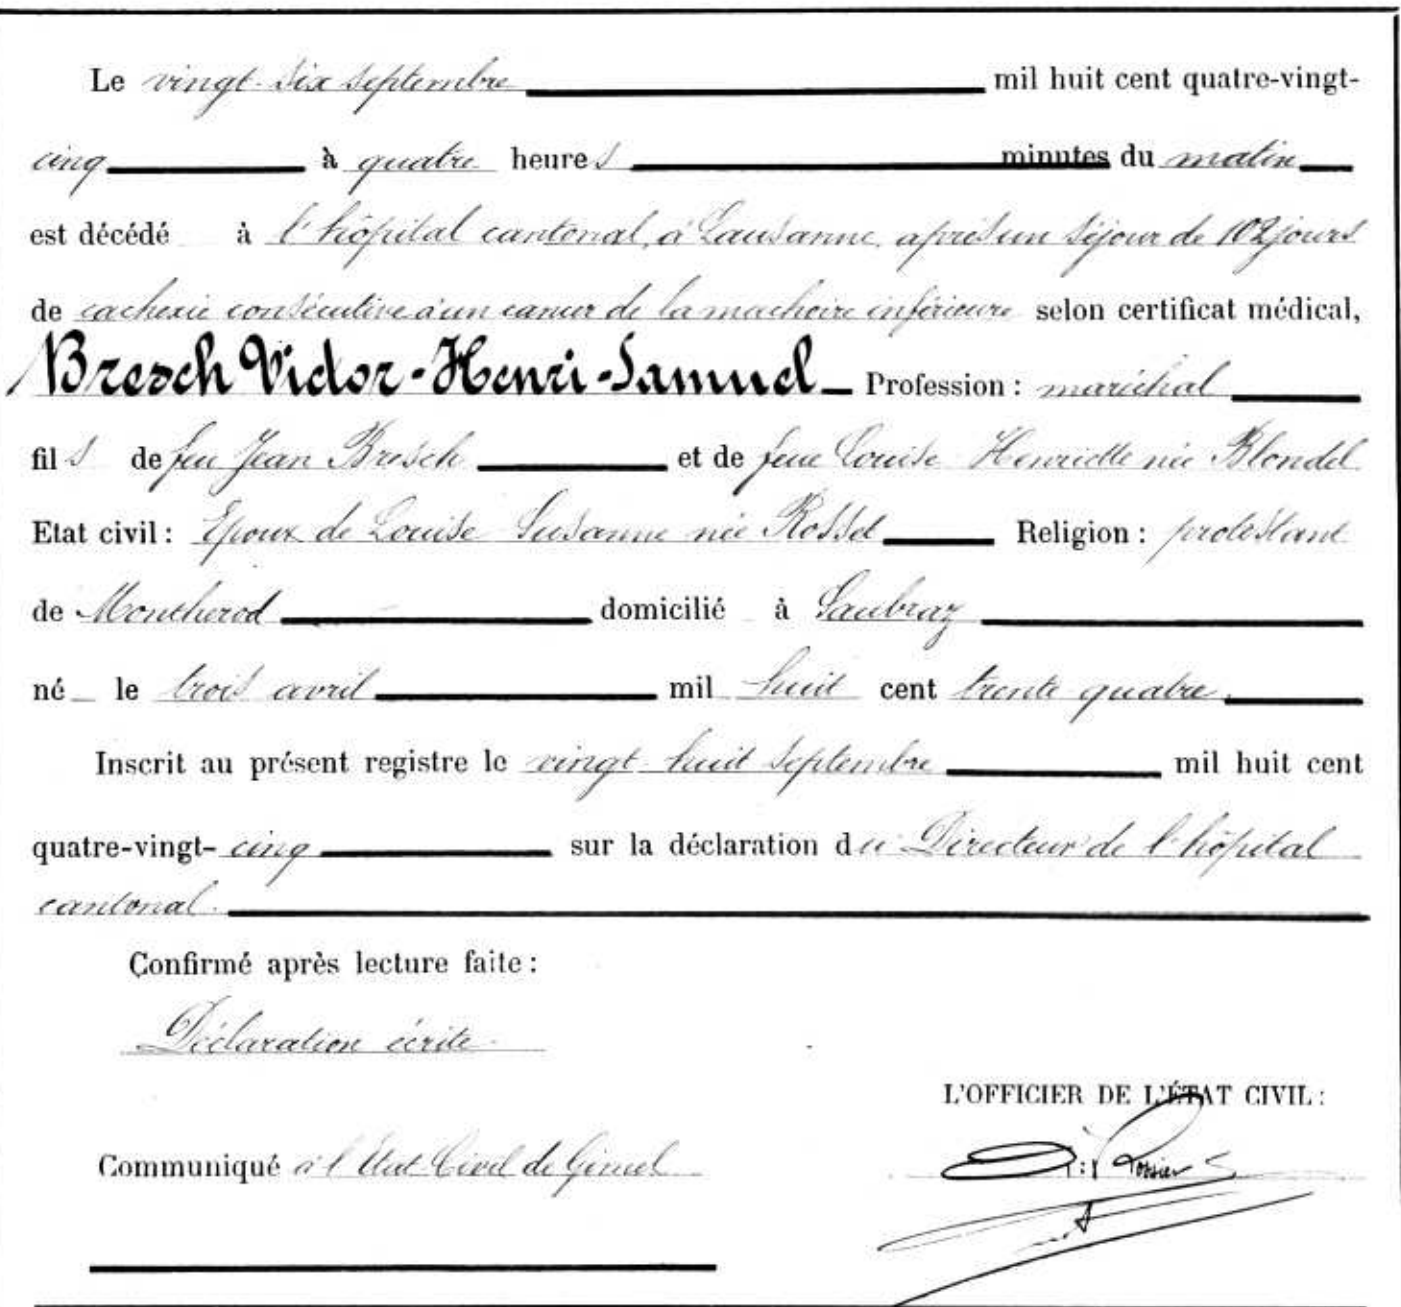 Le vingt-six septembre mil huit cent quatre-vingt-
cinq à quatre heures minutes du matin
est décédé à l'hôpital cantonal, à Lausanne, après un séjour de 102 jours
de cachexie consécutive à un cancer de la machoire inférieure selon certificat médical,
Bresch Victor-Henri-Samuel Profession : maréchal
fils de feu Jean Bresch et de feue Louise Henriette née Blondel
Etat civil : Epoux de Louise Susanne née Rosset Religion : protestant
de Montherod domicilié à Saubraz
né le trois avril mil huit cent trente quatre.
Inscrit au présent registre le vingt-huit septembre mil huit cent
quatre-vingt-cinq sur la déclaration du Directeur de l'hôpital
cantonal.
Confirmé après lecture faite :
Déclaration écrite.
L'OFFICIER DE L'ÉTAT CIVIL :
Communiqué à l'Etat Civil de Gimel